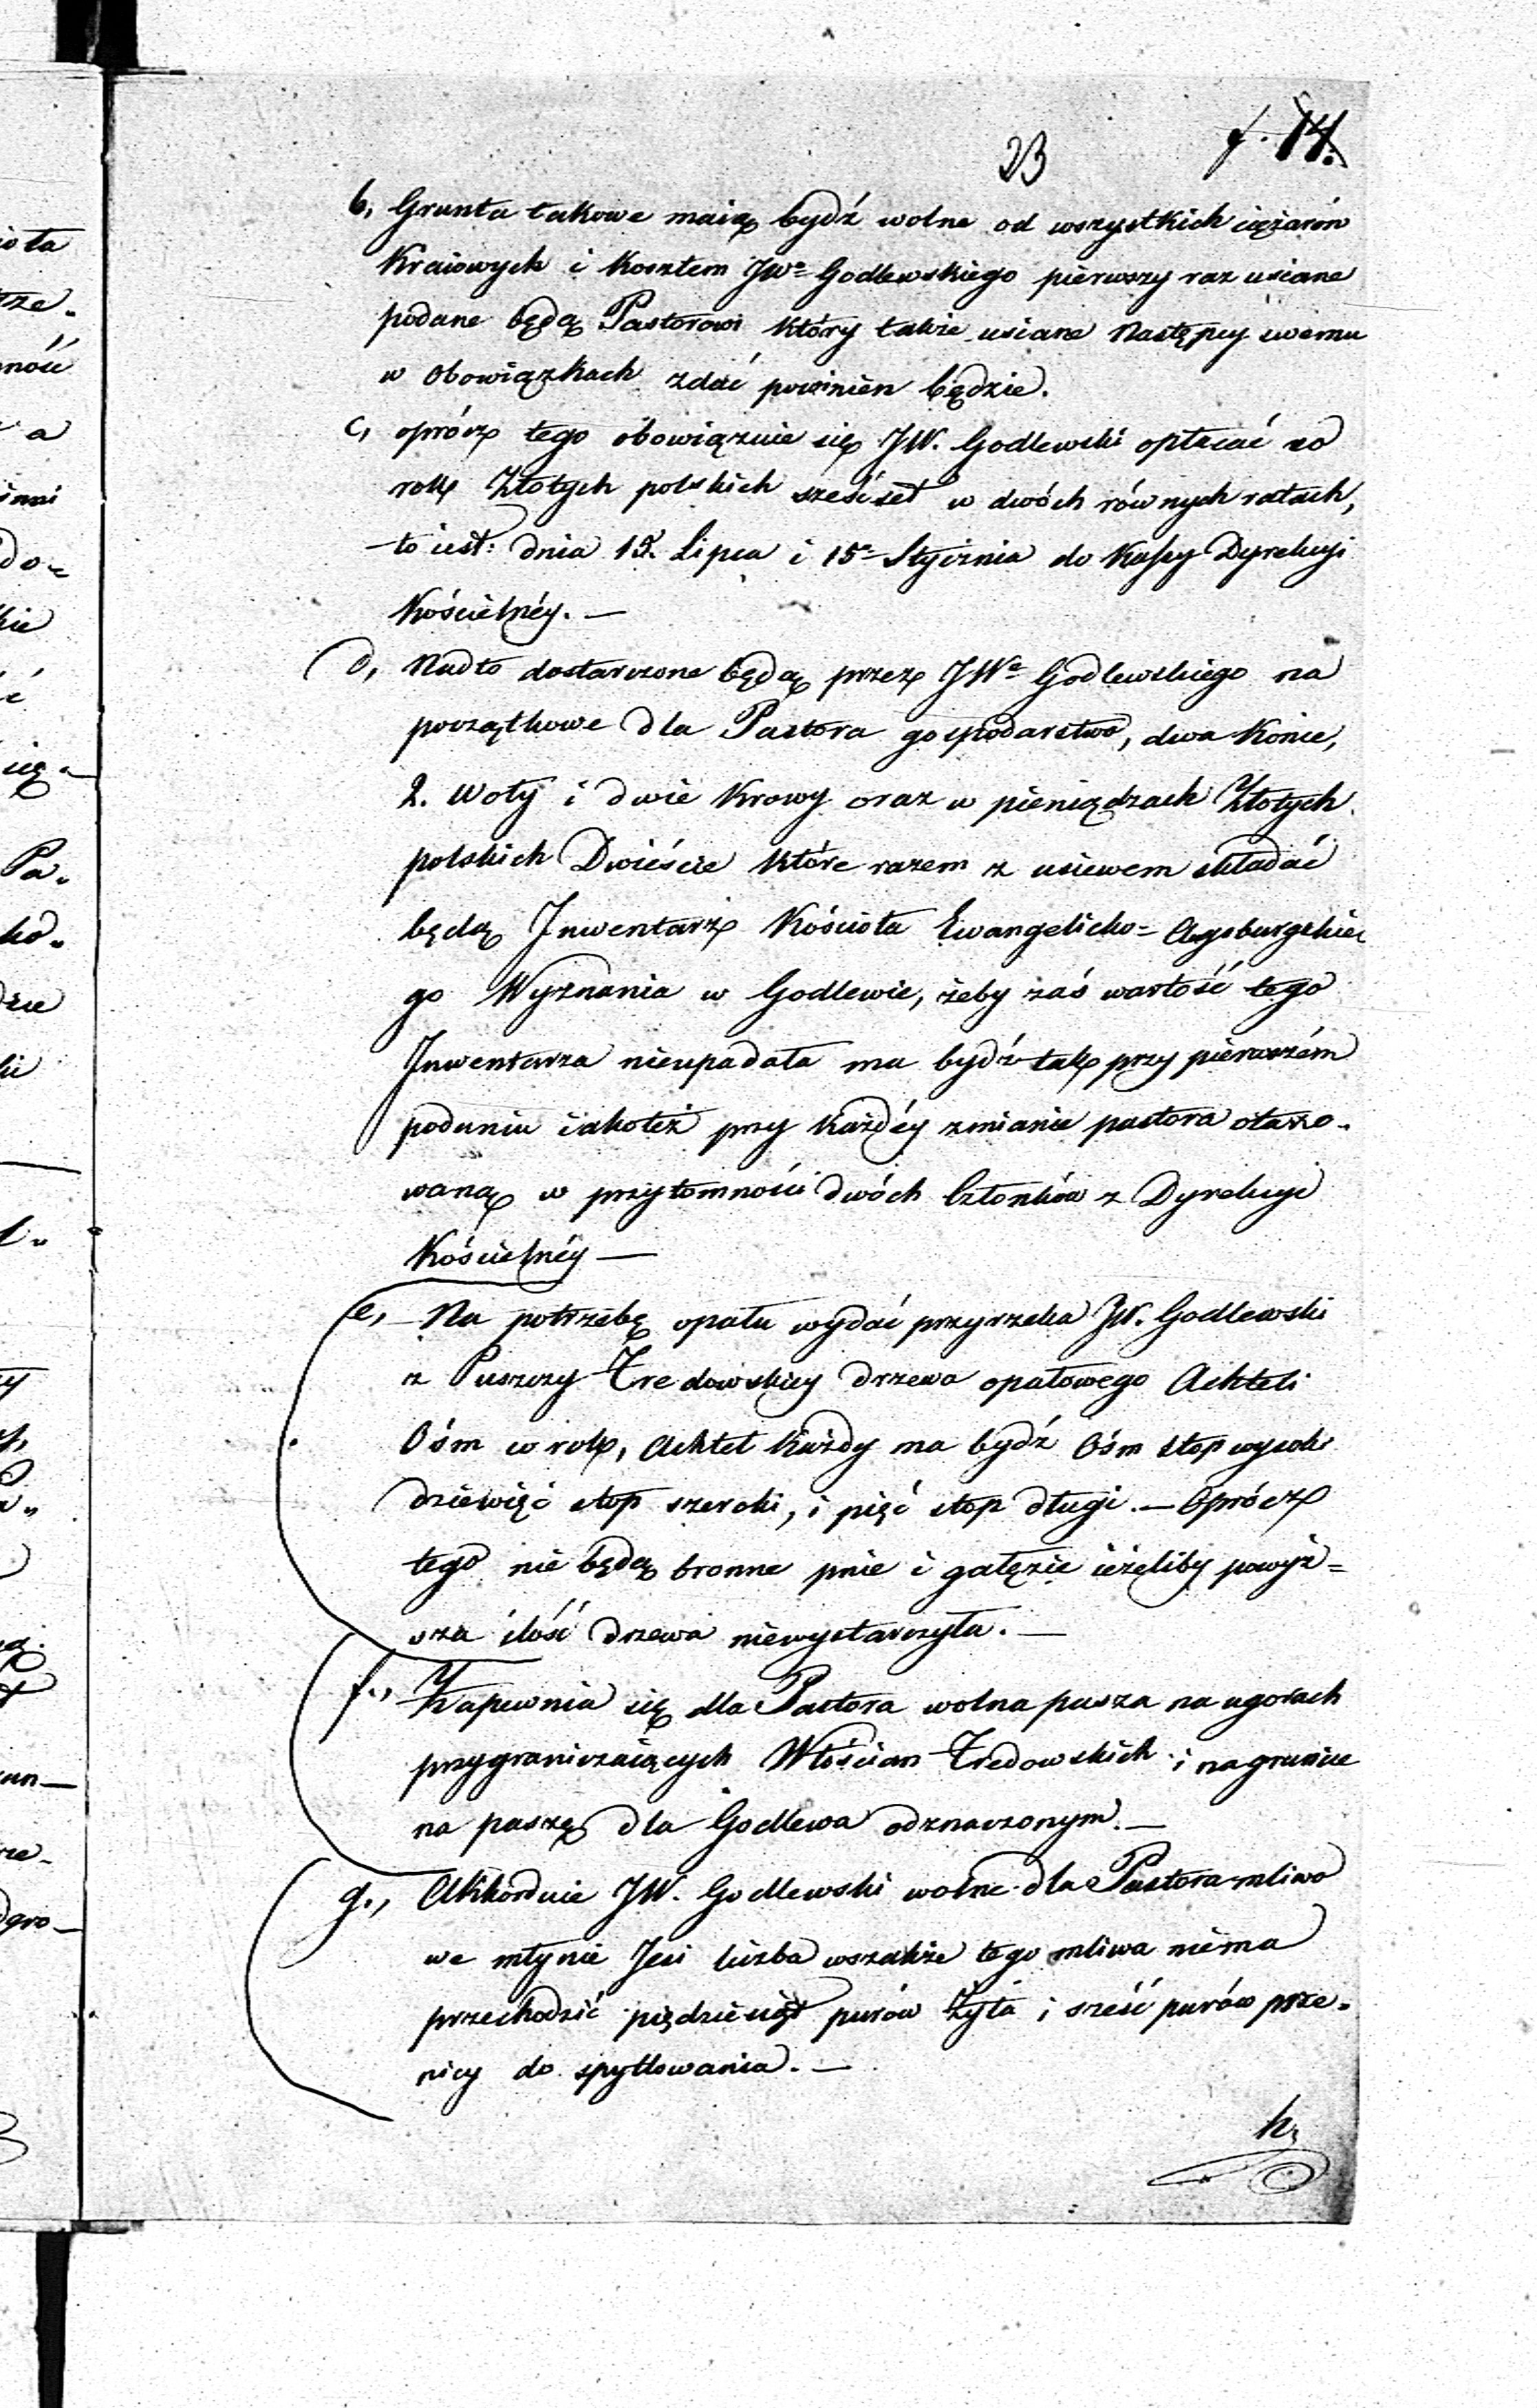 23
f. 14.
b, Grunta takowe maią bydź wolne od wszystkich ciężarów
Kraiowych i Kosztem JWo Godlewskiego pierwszy raz usiane
podane będą Pastorowi który takie usiane Następcy swemu
w Obowiązkach zdać powinien będzie.
c, oprócz tego obowiązuie się JW. Godlewski opłacać co
rok Złotych polskich sześćset w dwóch równych ratach,
to iest: dnia 15. Lipca i 15o Stycznia do Kassy Dyrekcyi
Kościelnéy. —
d, Nadto dostarczone będą przez JWo Godlewskiego na
początkowe dla Pastora gospodarstwo, dwa Konie,
2. Woły i dwie Krowy oraz w pieniądzach Złotych
polskich Dwieście które razem z usiewem składać
będą Inwentarz Kościoła Ewangelicko= Augsburgskie
go Wyznania w Godlewie, żeby zaś wartość tego
Inwentarza nieupadała ma bydź tak przy pierwszém
podaniu iakoteż przy każdéy zmianie pastora otaxo-
waną w przytomności dwóch Członków z Dyrekcyi
Kościelnéy —
e, Na potrzebę opału wydać przyrzeka JW. Godlewski
z Puszczy Fredowskiey drzewa opałowego Achteli
Ośm w rok, Achtel każdy ma bydź Ośm stop wysoki
dziewięć stop szeroki, i pięć stop długi. — Oprócz
tego nie będą bronne pnie i gałęzie ieżeliby powyż=
sza ilość drzewa niewystarczyła. —
f., Zapewnia się dla Pastora wolna pasza na ugorach
przygraniczaiących Włościan Fredowskich i na gruncie
na paszę dla Godlewa odznaczonym. —
g., Akkorduie JW. Godlewski wolne dla Pastora mliwo
we młynie Jesi liczba wszakże tego mliwa niema
przechodzić piędziesiąt purów Żyta i sześć purów psze-
nicy do spytlowania. —
h,